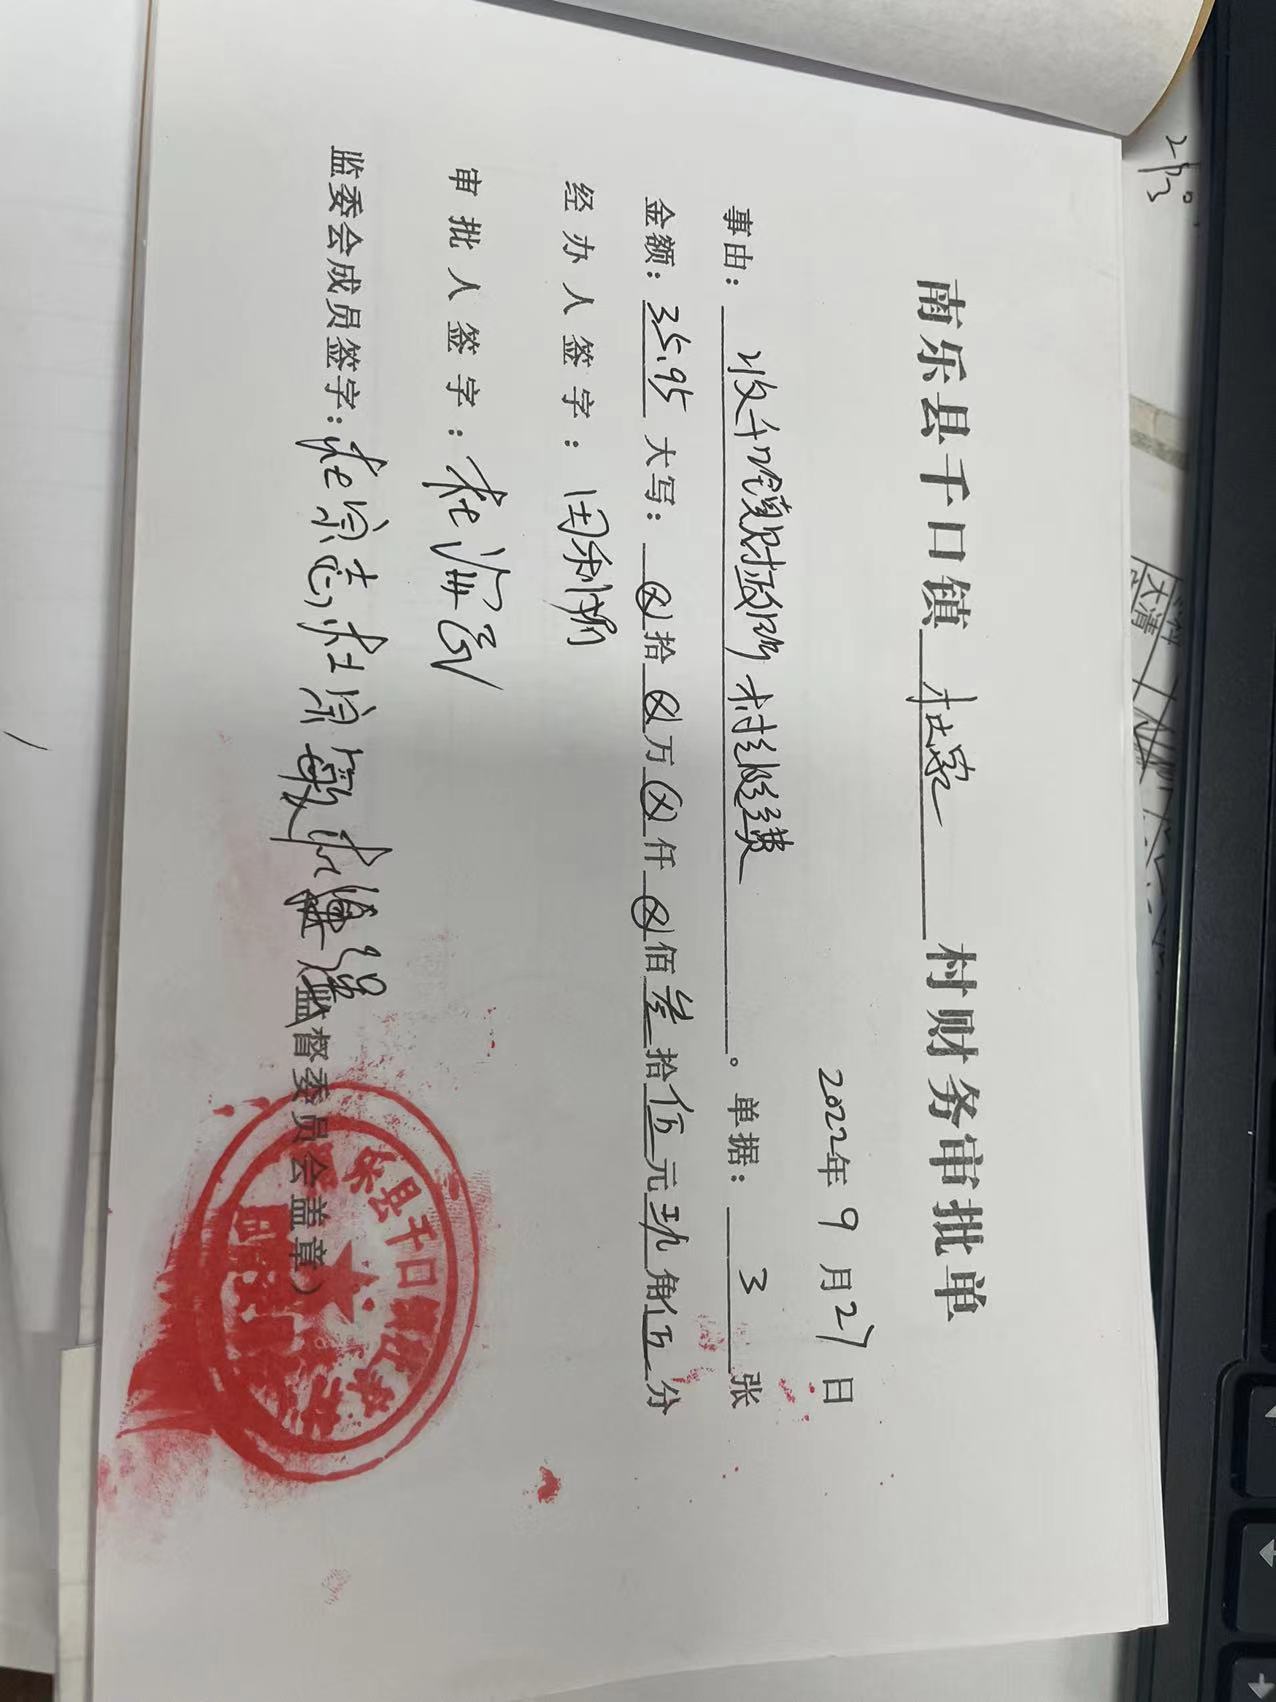 南乐县千口镇 杜家 村财务审批单
2022年9月27日
事由：收千口镇财政所村级经费。单据：3张
金额：35.95 大写：⊗拾⊗万⊗仟⊗佰叁拾伍元玖角伍分
经办人签字：田利娟
审批人签字：杜海
监委会成员签字：杜宗志，杜宗敏 杜 强
监督委员会盖章）
乐县千口镇
大清